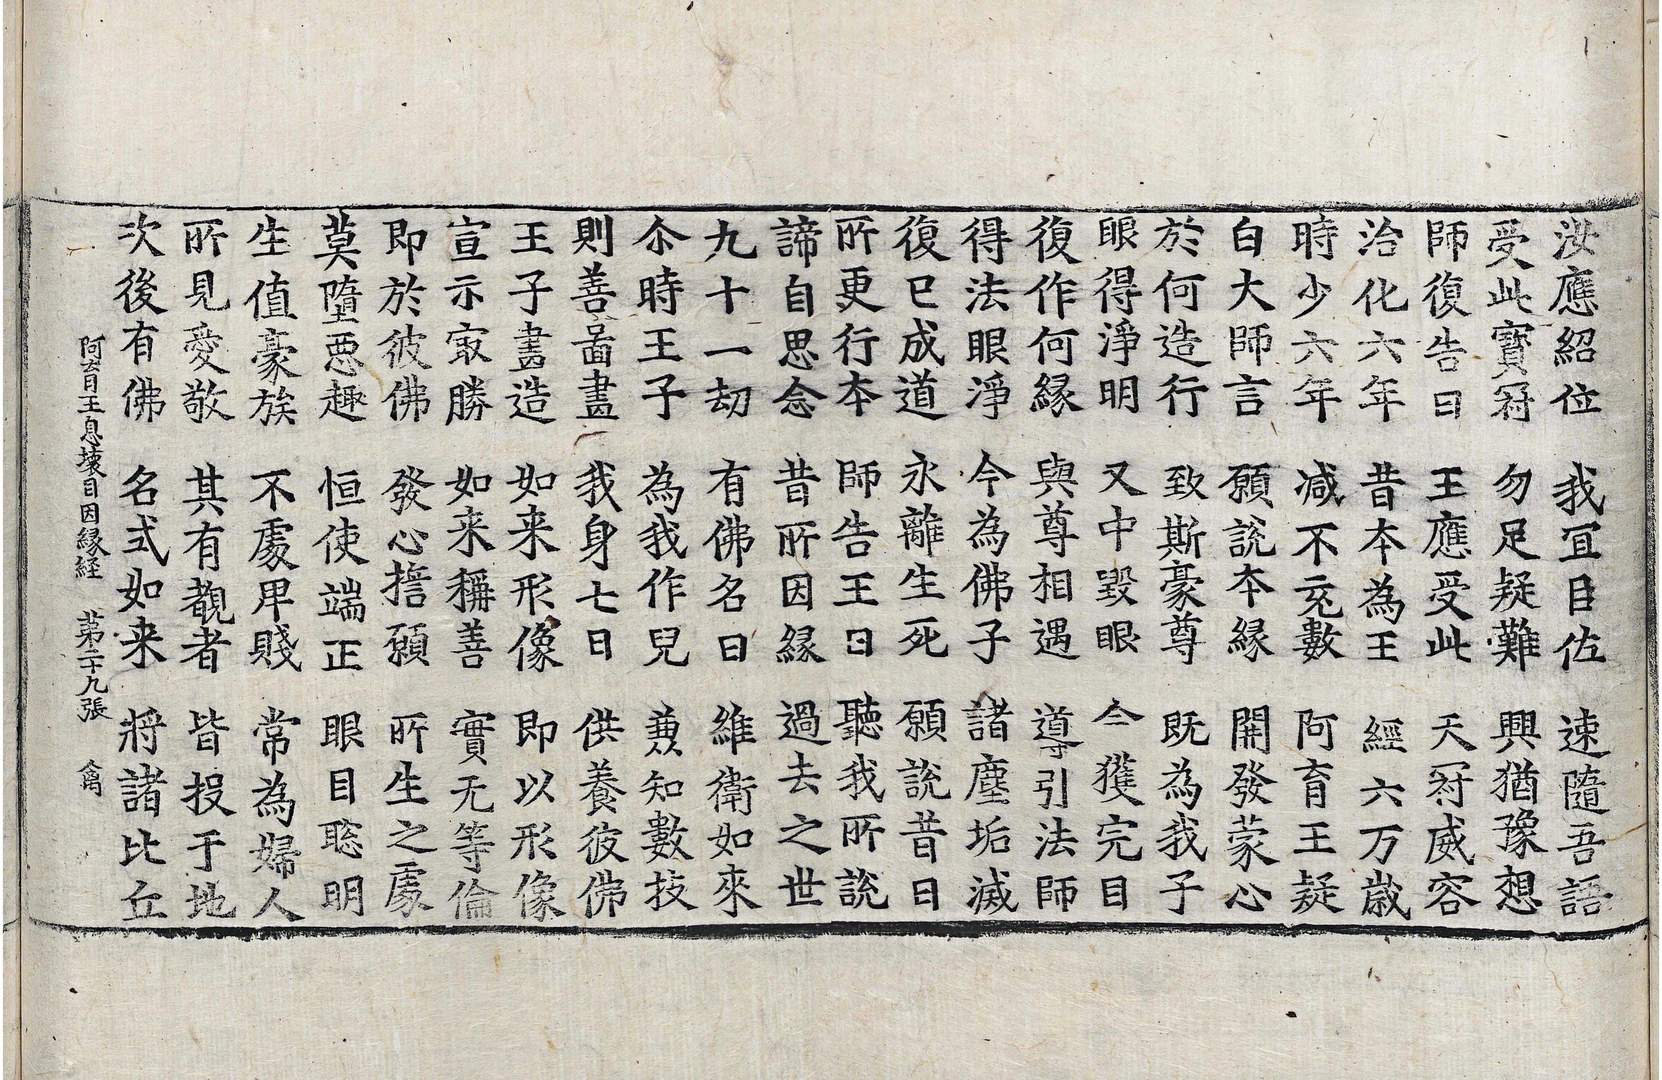 汝應紹位　我冝自佐　速隨吾語
受此寳冠　勿足疑難　興猶豫想
師復告曰　王應受此　天冠威容
治化六年　昔本為王　經六万歲
時少六年　減不充數　阿育王疑
白大師言　願説本緣　開發蒙心
於何造行　致斯豪尊　既為我子
眼得淨明　又中毀眼　今獲完目
復作何緣　與尊相遇　導引法師
得法眼淨　今為佛子　諸塵垢滅
復已成道　永離生死　願説昔日
所更行本　師告王曰　聽我所説
諦自思念　昔所因緣　過去之世
九十一劫　有佛名曰　維衛如來
尒時王子　為我作兒　兼知數技
則善啚畫　我身七日　供養彼佛
王子畫造　如来形像　即以形像
宣示㝡勝　如来稱善　實无等倫
即於彼佛　發心擔願　所生之處
莫墮惡趣　恒使端正　眼目聦明
生值豪族　不處卑賤　常為婦人
所見愛敬　其有覩者　皆投于地
次後有佛　名式如来　將諸比丘
阿育王息壊目因縁経　苐二十九張　禽